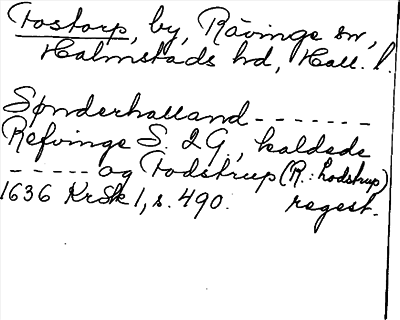 Tostorp, by, Rävinge sn,
Halmstads hd, Hall. l.
Sønderhalland - - - - - - -
Refvinge S. 2 G, kaldede
- - - - - - og Todstrup (R.: Lodstrup)
1636 KrSk 1, s. 490. regest.